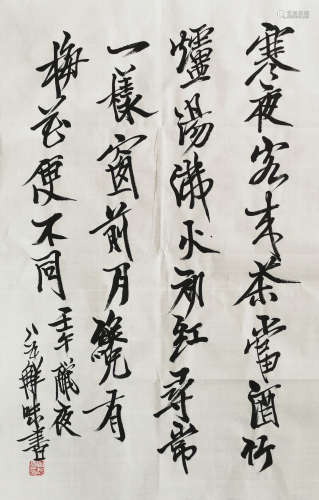 寒夜客来茶當酒竹
爐湯沸火初紅尋常
一樣窗前月纔有
梅花便不同
壬午臘夜
書